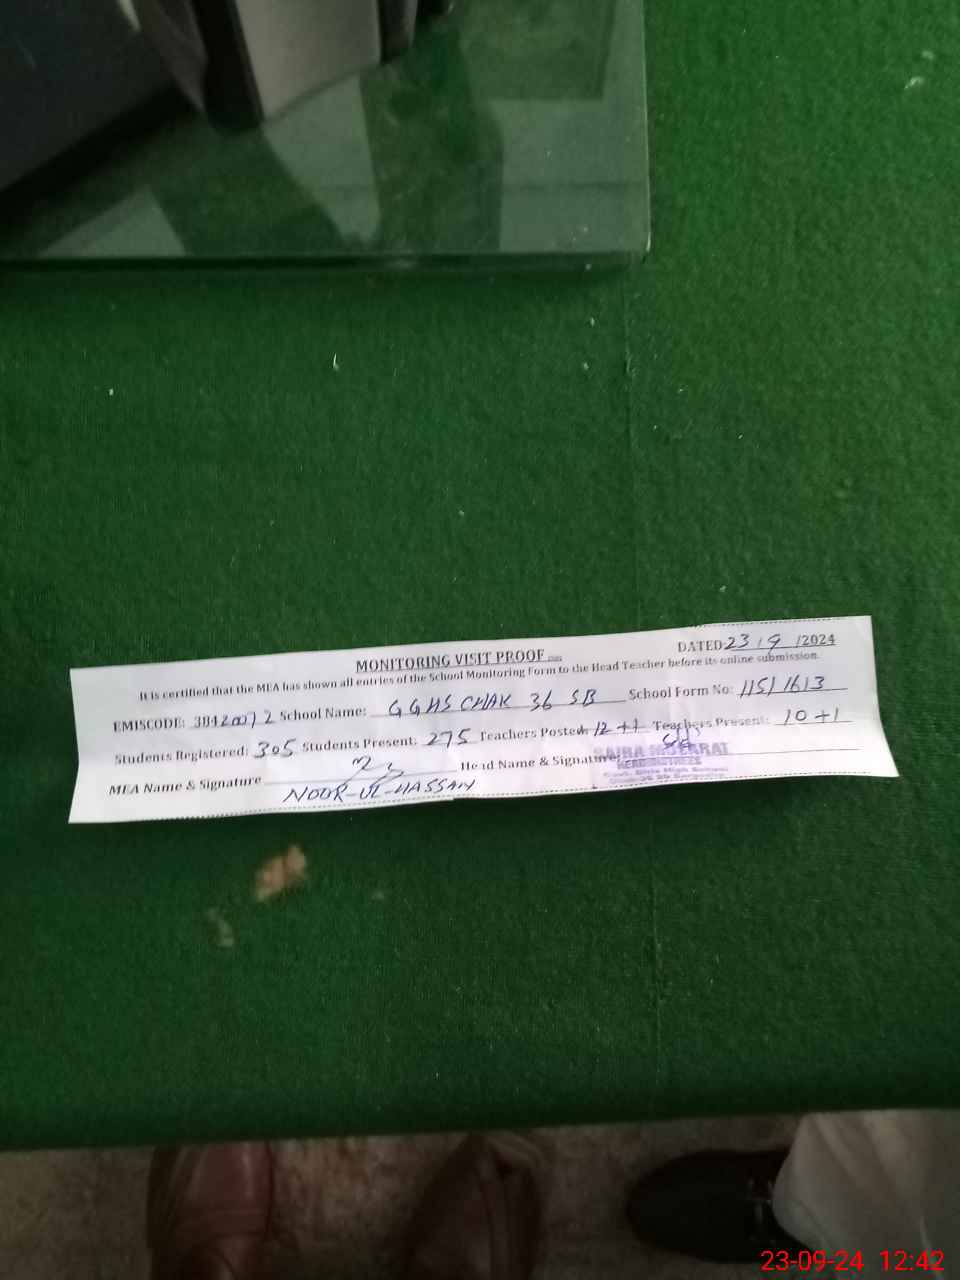 MONITORING VISIT PROOF
DATED 23/9/2024
It is certified that the MEA has shown all entries of the School Monitoring Form to the Head Teacher before its online submission.
EMISCODE: 38420072 School Name: GGHS CHAK 36 SB School Form No: 11511613
Students Registered: 305 Students Present: 275 Teachers Posted: 12+1 Teachers Present: 10+1
MEA Name & Signature NOOR-UL-HASSAN Head Name & Signature
SAIRA
HEADMISTRESS
Govt. Girls High School
36 Sb Sargodha
23-09-24 12:42